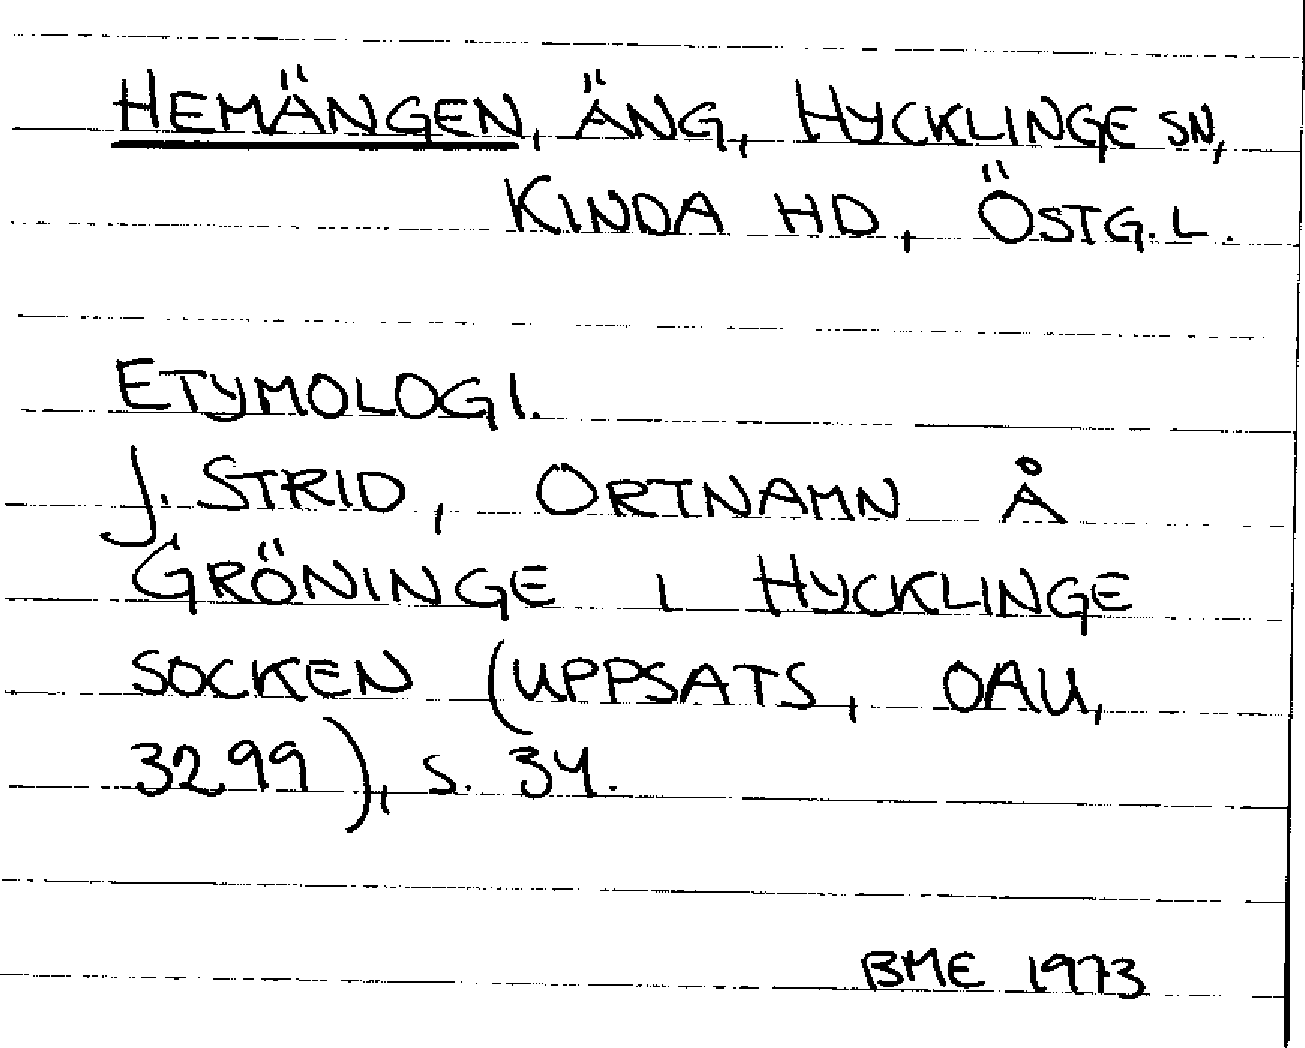 HEMÄNGEN, ÄNG, HYCKLINGE SN,
KINDA HD, ÖSTG. L.
ETYMOLOGI.
J. STRID, ORTNAMN Å
GRÖNINGE I HYCKLINGE
SOCKEN (UPPSATS, OAU,
3299), S. 34.
BME 1973